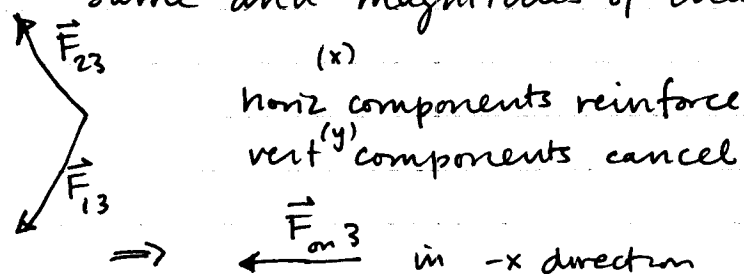 same and magnitudes of
F⃗₂₃
(x)
horiz components reinforce
vert (y) components cancel
F⃗₁₃
⇒ F⃗on 3 in -x direction